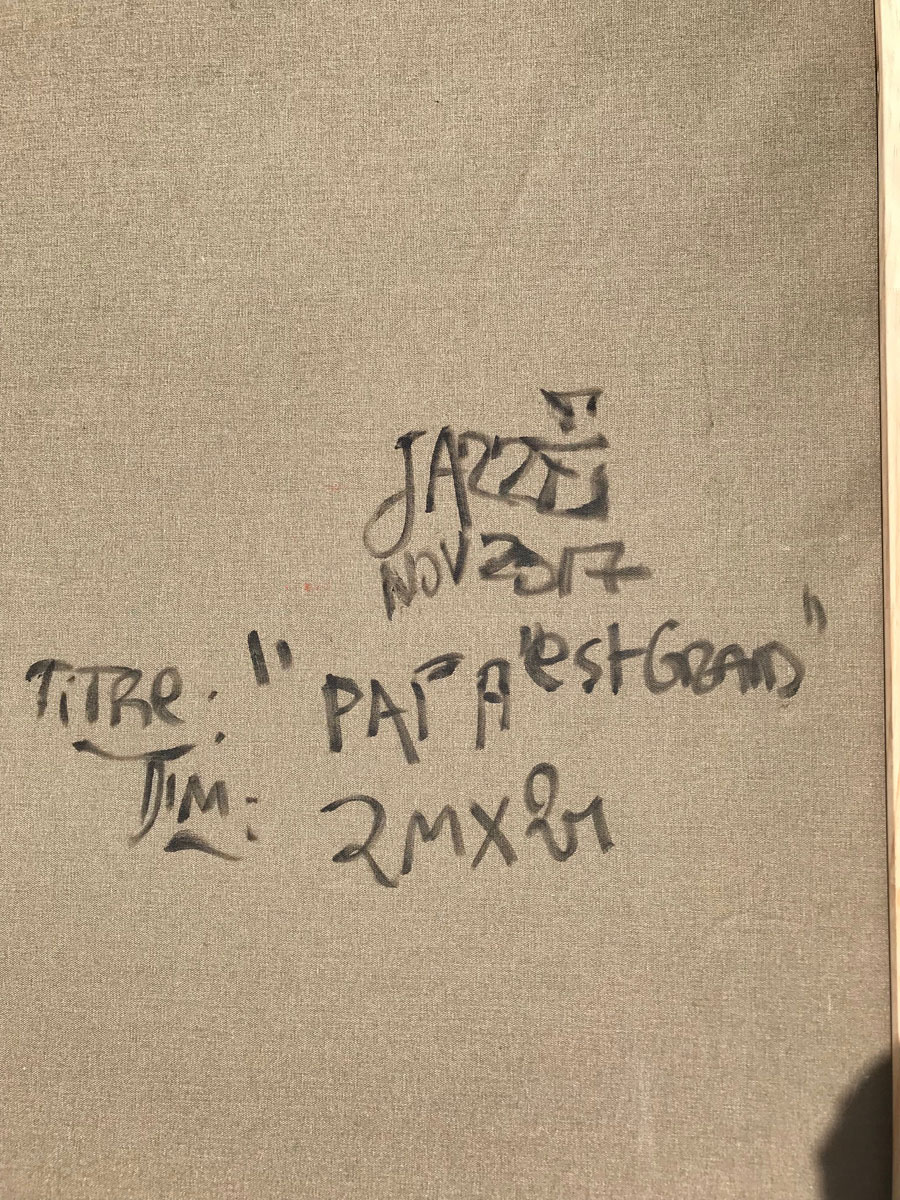 JAZZÜ
NOV 2017
TITRE : " PAPA "est GRAND"
DIM : 2MX2M